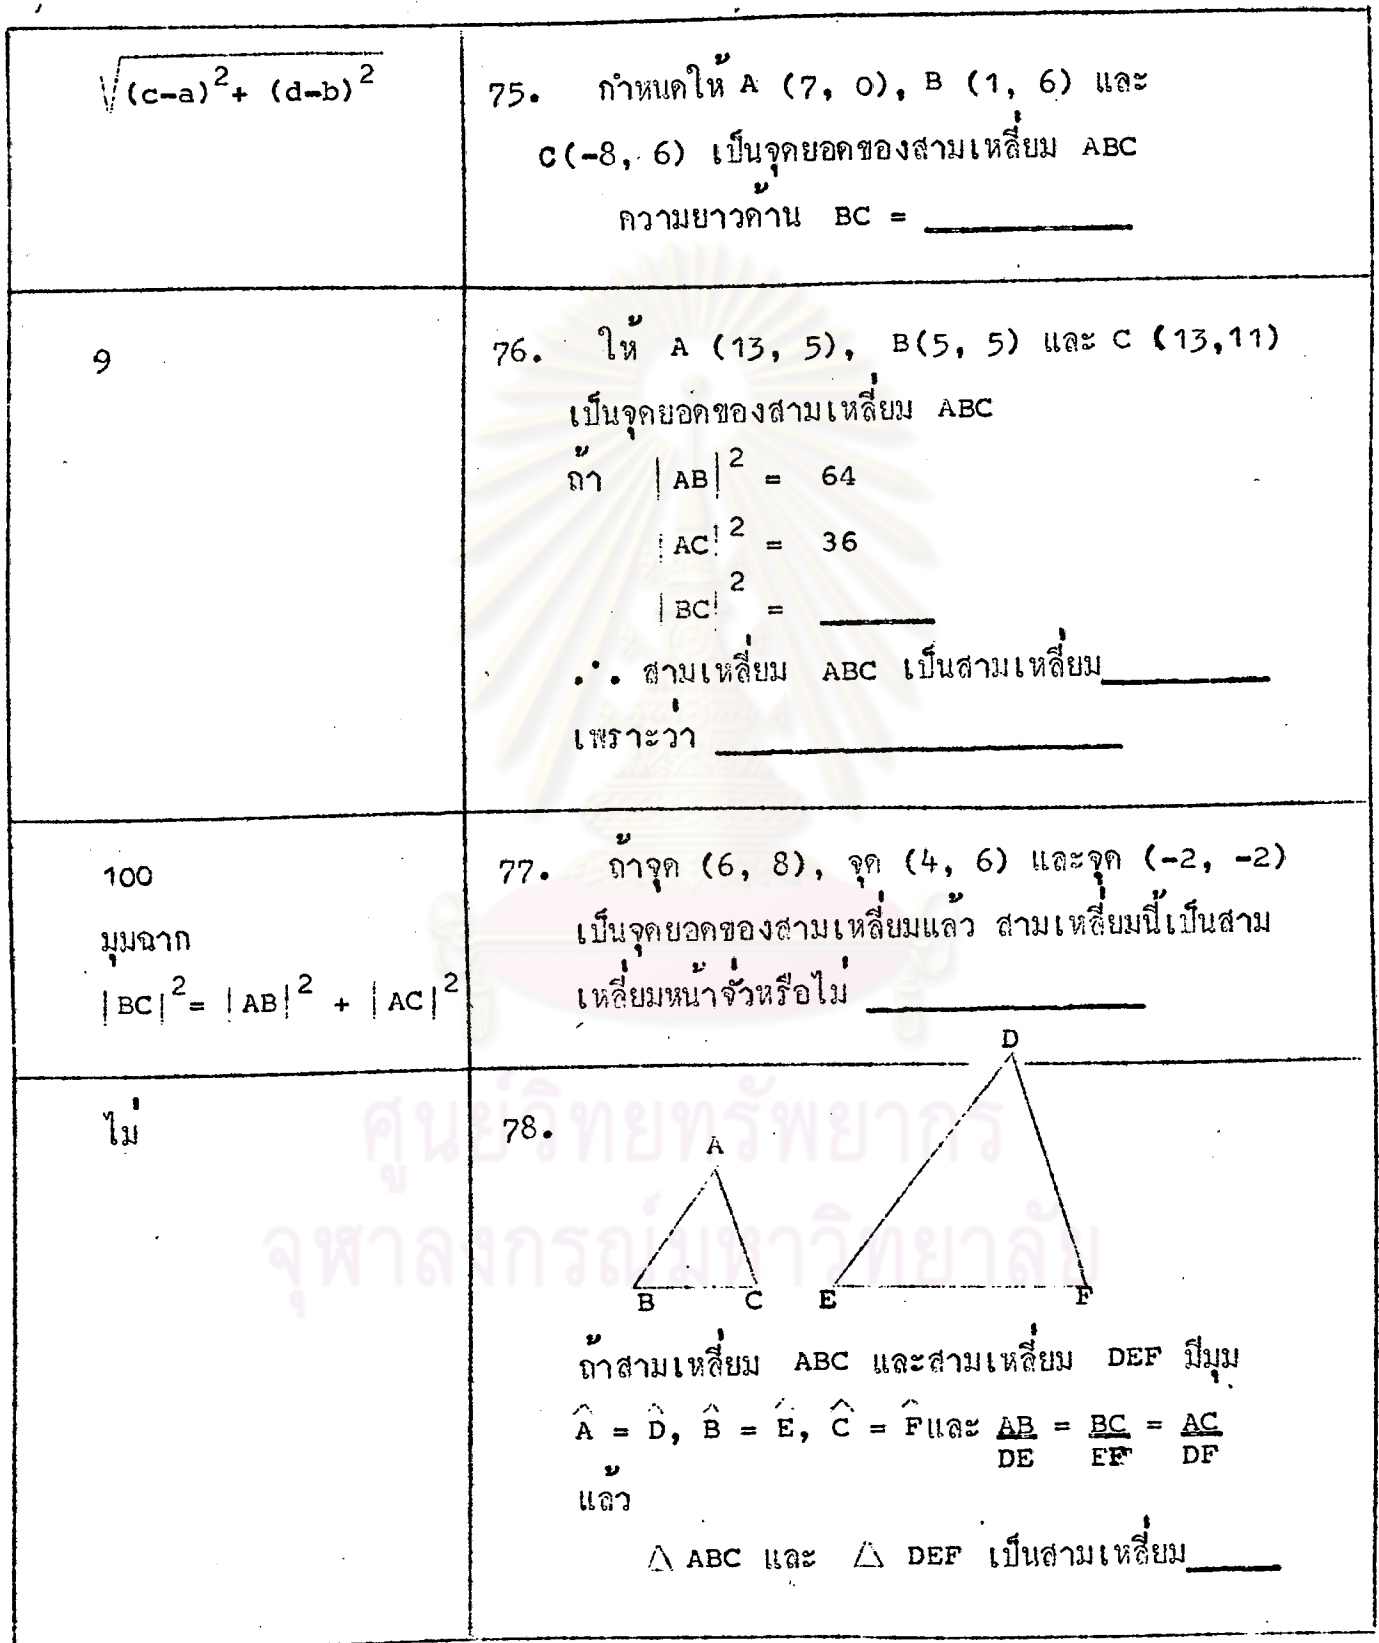 √(c-a)²+ (d-b)²
75. กำหนดให้ A (7, 0), B (1, 6) และ
C(-8, 6) เป็นจุดยอดของสามเหลี่ยม ABC
ความยาวด้าน BC = ________
9
76. ให้ A (13, 5), B(5, 5) และ C (13,11)
เป็นจุดยอดของสามเหลี่ยม ABC
ถ้า |AB|² = 64
|AC|² = 36
|BC|² = ________
∴ สามเหลี่ยม ABC เป็นสามเหลี่ยม________
เพราะว่า ________
100
มุมฉาก
|BC|²= |AB|² + |AC|²
77. ถ้าจุด (6, 8), จุด (4, 6) และจุด (-2, -2)
เป็นจุดยอดของสามเหลี่ยมแล้ว สามเหลี่ยมนี้เป็นสาม
เหลี่ยมหน้าจั่วหรือไม่ ________
ไม่
78.
D
A
B C E F
ถ้าสามเหลี่ยม ABC และสามเหลี่ยม DEF มีมุม
Â = D̂, B̂ = Ê, Ĉ = F̂และ AB/DE = BC/EF = AC/DF
แล้ว
△ ABC และ △ DEF เป็นสามเหลี่ยม________
ศูนย์วิทยทรัพยากร
จุฬาลงกรณ์มหาวิทยาลัย